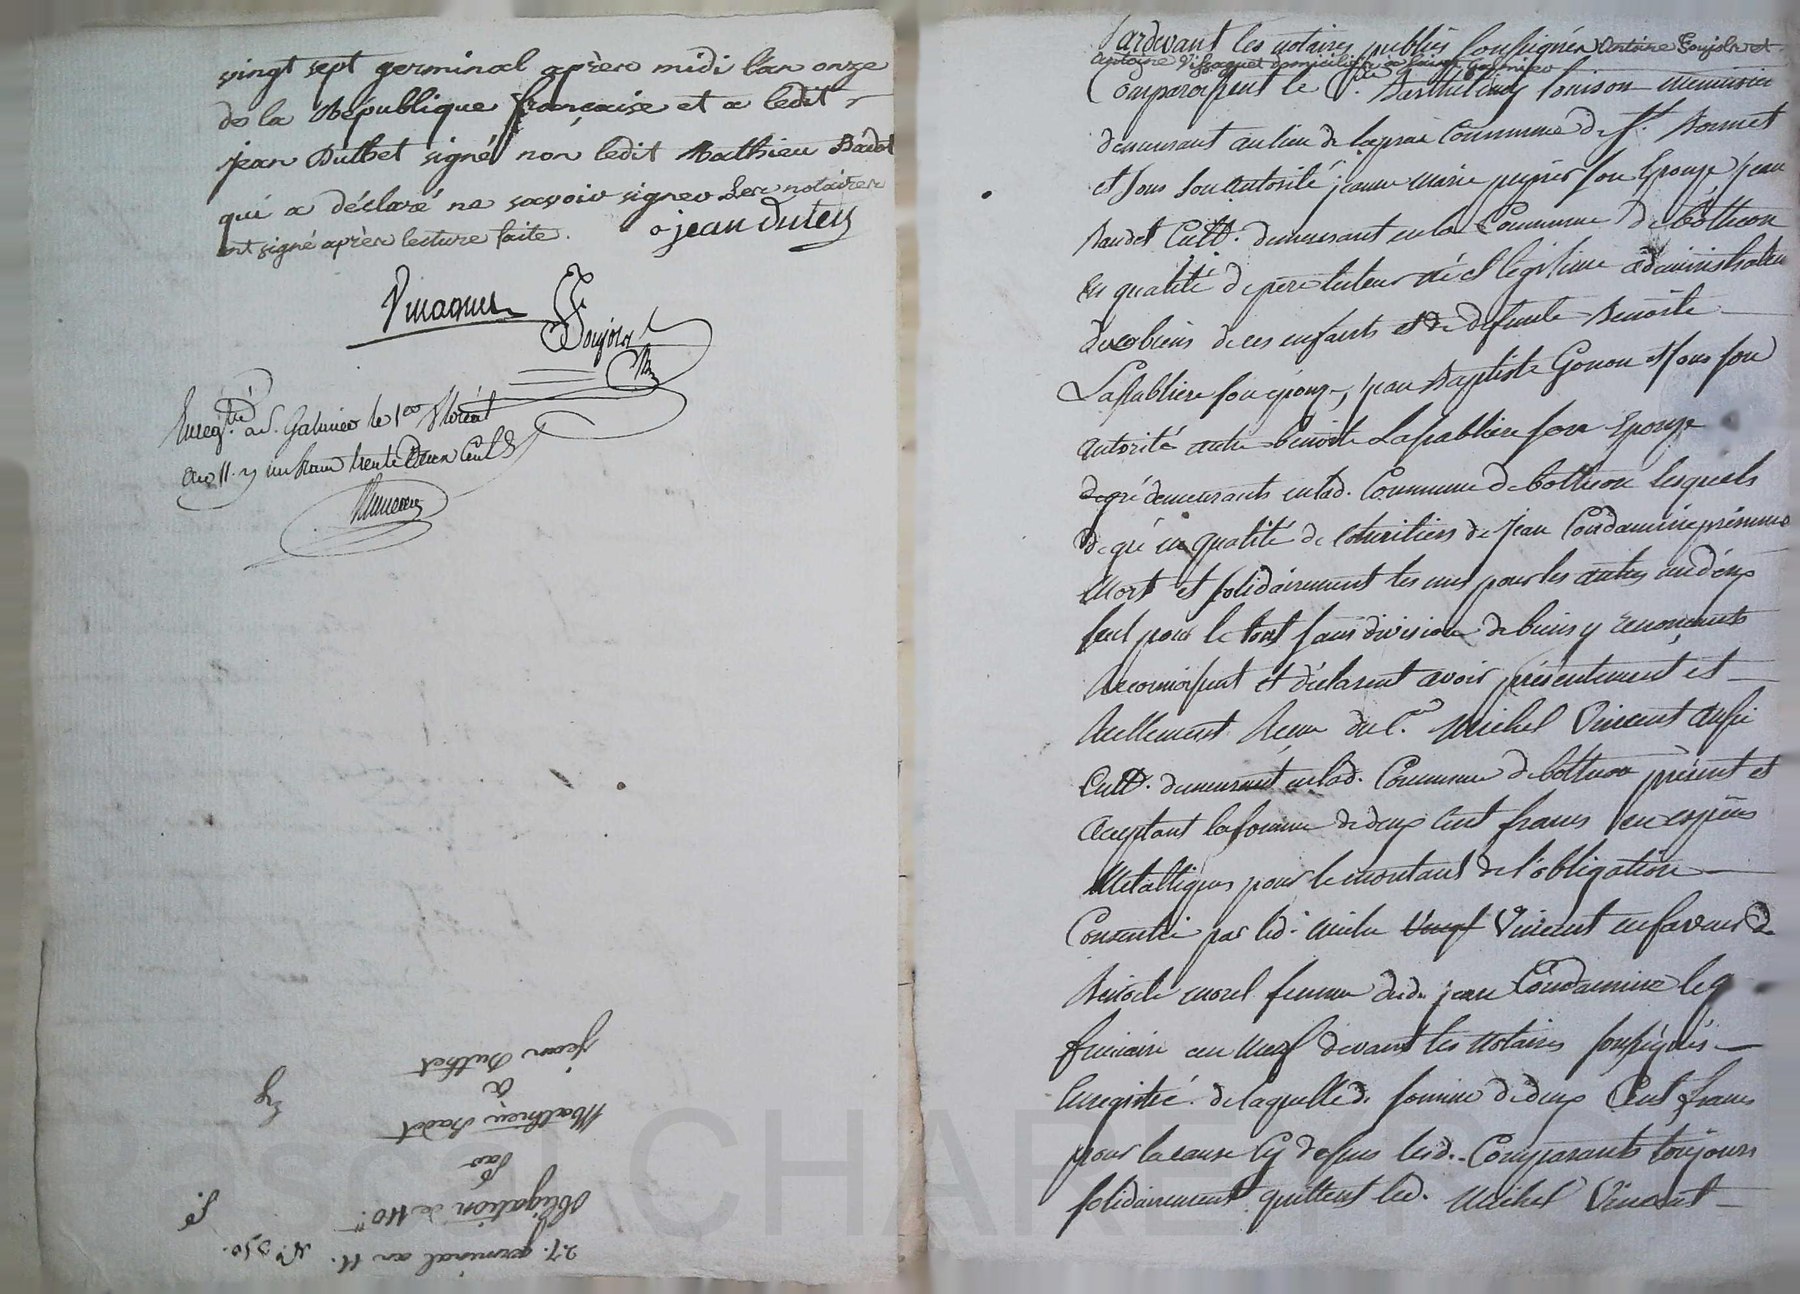 vingt sept germinal après midi l'an onze
de la République française et a ledit
jean Duthet signé non ledit Mathieu Badot
qui a déclaré ne savoir signer Les notaires
ont signé après lecture faite. jean dutey
Goujon
Enreg.tré à S. Galmier le 1er floréal
an 11. un franc trente deux cent
27. germinal an 11. N.o 350.
Obligation de 110.#
Par
Mathieu Badot
à
jean Duthet
Pardevant les notaires publics soussignés Antoine Goujon et
antoine domiciliés à saint Galmier
Comparaissent le C. Barthelemy Loirson Menuisier
demeurant au lieu de lapraé Commune de St. Bonnet
et sous son autorité jeanne Marie peyrer son Epouse jean
Baudet Cult. demeurant en la Commune de botheon
En qualité de pere tuteur né et légitime administrateur
des biens de ces enfants et de defunte Benoite
Lasablière son épouse, jean Baptiste Gonon et sous son
autorité autre benoite Lasablière son Epouse
de gré demeurants en lad. Commune de botheon Lesquels
de gré en qualité de héritiers de jean Condamine présumé
Mort et solidairement les uns pour les autres un d'eux
seul pour le tout sans division de biens y renonçants
Reconnoissent et déclarent avoir présentement et
Reellement Reçu du C.en Michel Vincent aussi
Cult. demeurant en lad. Commune de botheon présent et
acceptant la somme de deux cent francs en espèces
Métalliques pour le montant de l'obligation
Consentie par led. Michel Vincent en faveur de
Benoite morel femme dud. jean Condamine le 9
frimaire an Neuf devant les Notaires soussignés
Enregistré. de laquelle d. somme de deux Cent francs
pour la cause Cy dessus lesd. Comparants toujours
solidairement quittent led. Michel Vincent
Pascal CHAREYRON